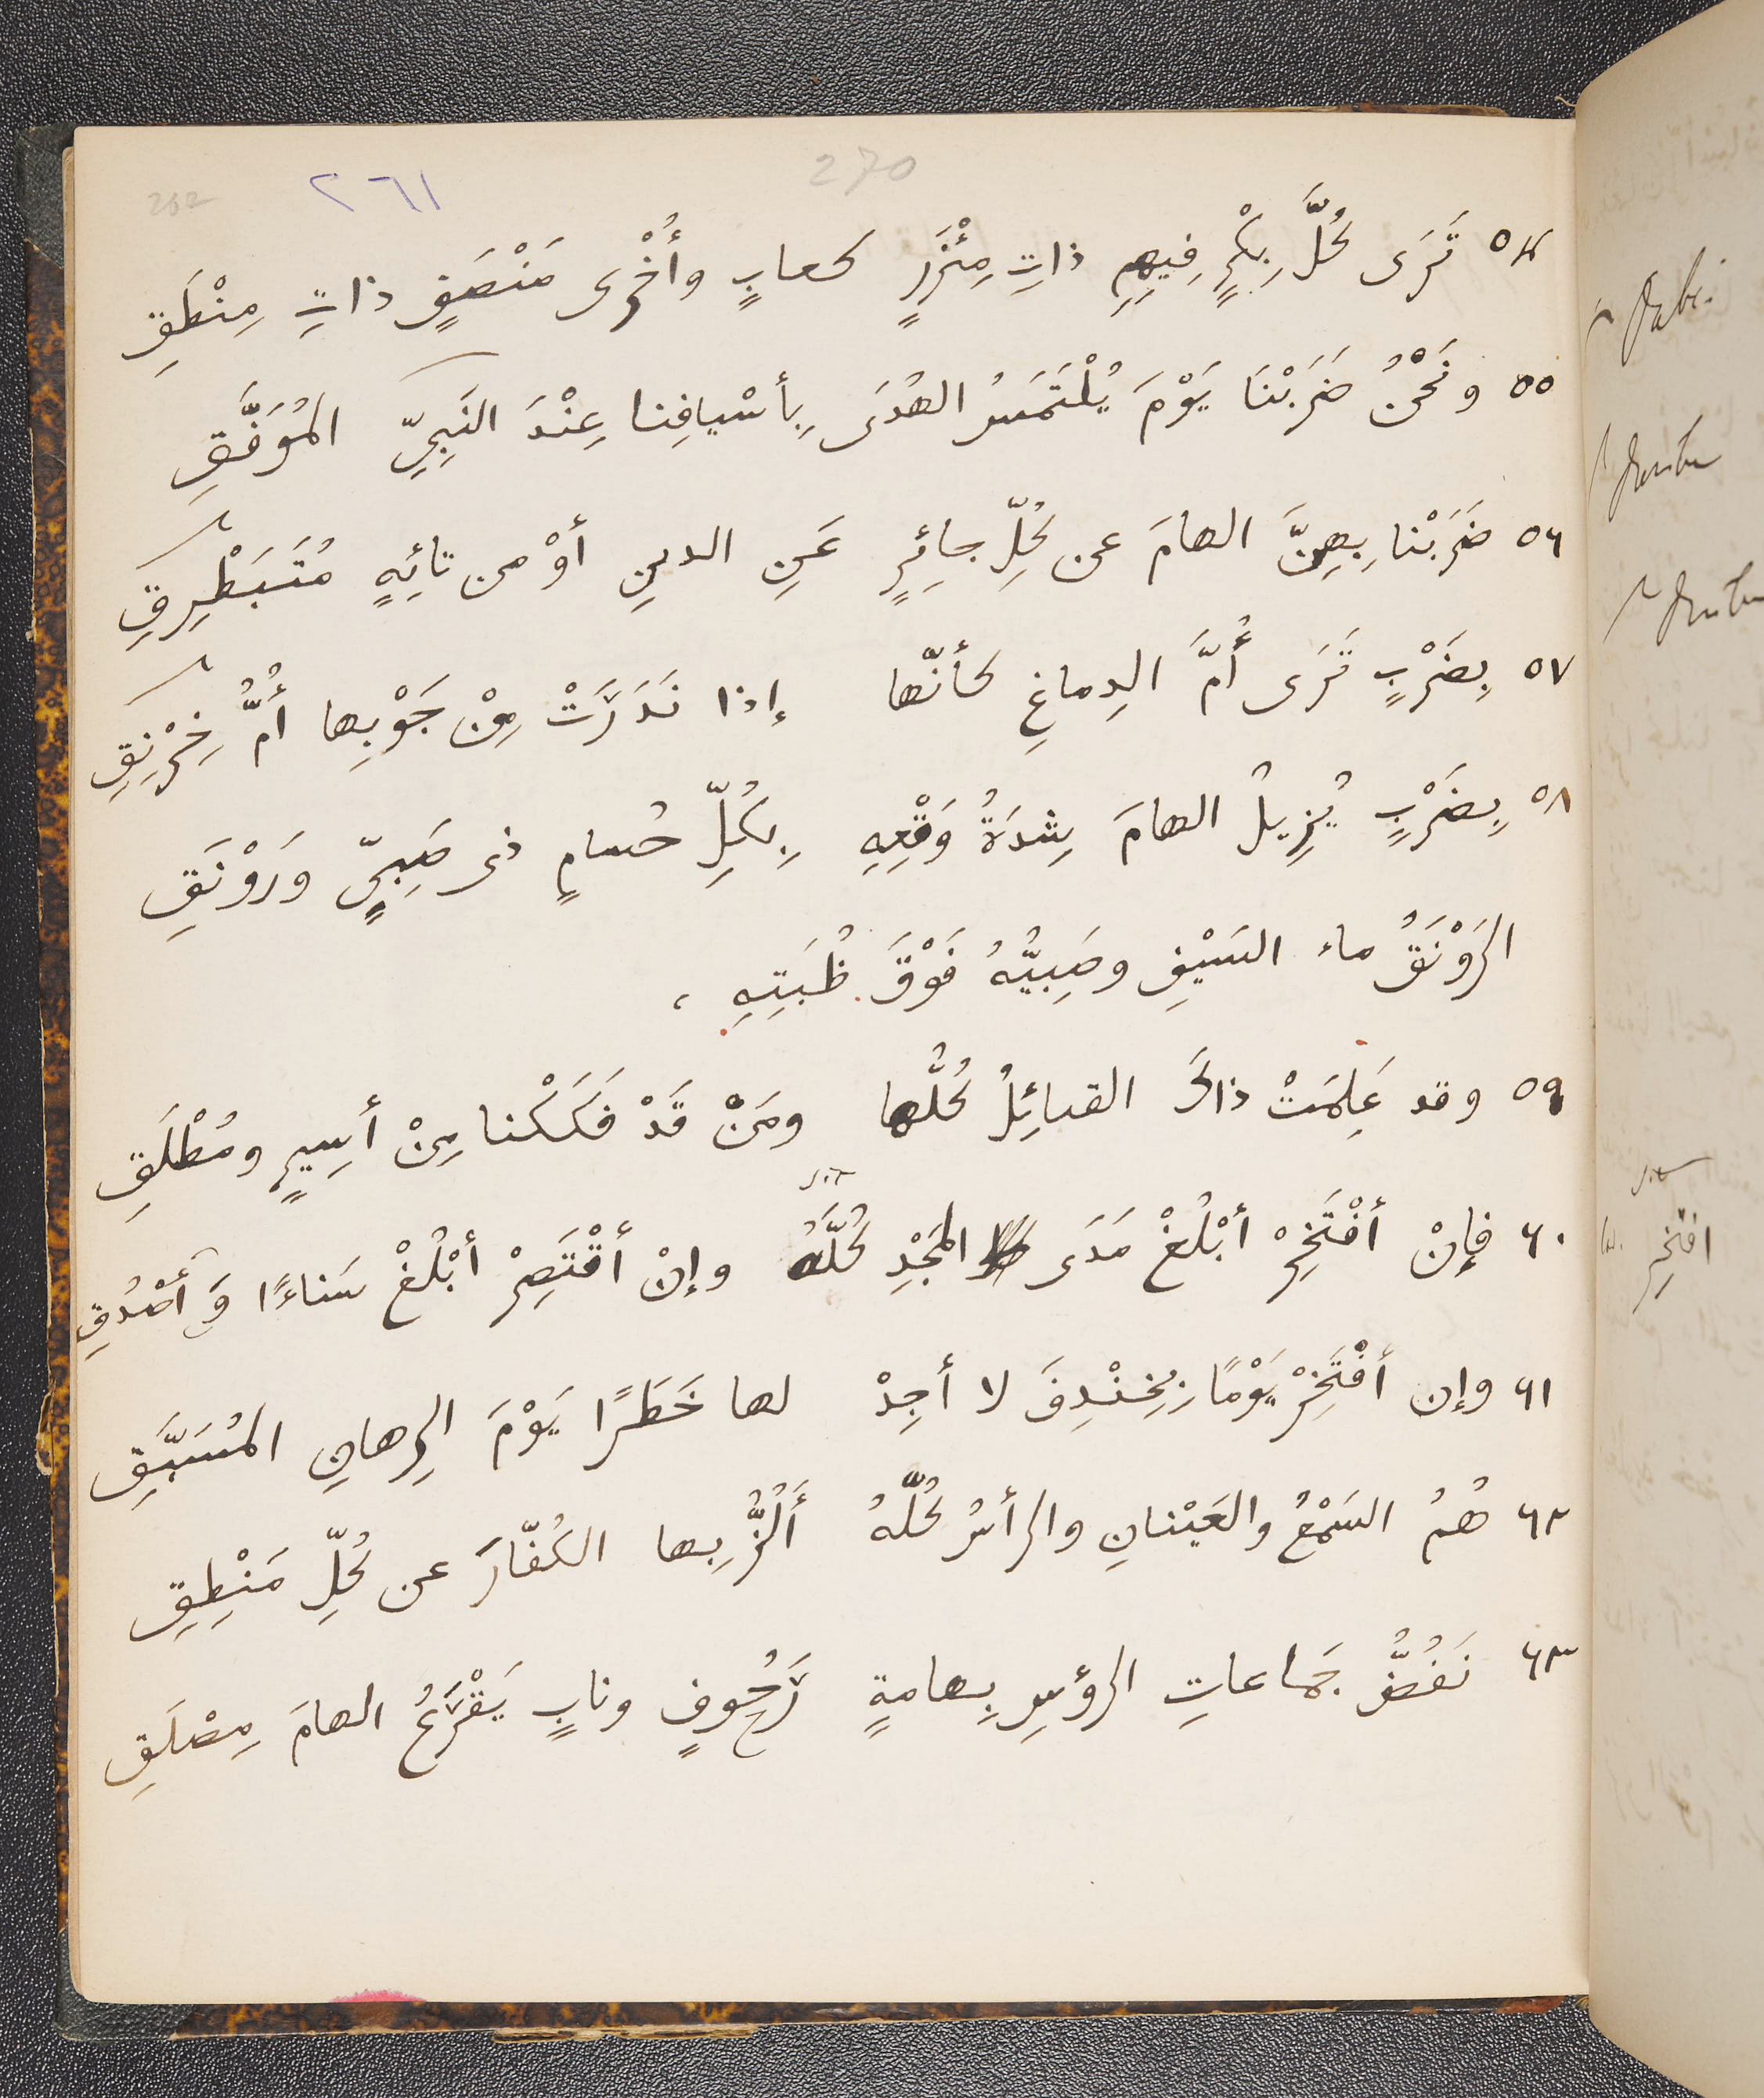 252 ٢٦١ 270
٥٤ تَرَى كُلَّ بِكْرٍ فِيهِمِ ذاتِ مِئْزَرٍ كعابٍ وأُخْرى مَنْصَفٍ ذاتِ مِنْطَقِ
٥٥ ونَحْنُ ضَرَبْنَا يَوْمَ يُلْتَمَسُ الهُدَى بِأسْيافِنا عِنْدَ النَبِيِّ المُوَفَّقِ
٥٦ ضَرَبْنا بِهِنَّ الهامَ عن كُلِّ جائِرٍ عَنِ الدينِ أوْ من تائِهٍ مُتَبَطْرِقِ
٥٧ بِضَرْبٍ تَرَى أُمَّ الدِماغِ كأنّها إذا نَدَرَتْ مِنْ جَوْبِها أُمُّ خِرْنِقِ
٥٨ بِضَرْبٍ يُزِيلُ الهامَ شِدَةُ وَقْعِهِ بِكُلِّ حُسامٍ ذى صَبِيٍّ وَرَوْنَقِ
الرَوْنَقُ ماء السَيْفِ وصَبِيُّهُ فَوْقَ ظُبَتِهِ ،
٥٩ وقد عَلِمَتْ ذاكَ القبائِلُ كُلُّها ومَنْ قَدْ فَكَكْنا مِنْ أسِيرٍ ومُطْلَقِ
٦٠ فإنْ أفْتَخِرْ أبْلُغْ مَدَى المَجْدِ كُلَّهُ وإنْ أقْتَصِرْ أبْلُغْ سَناءًا وَأَصْدُقِ
٦١ وإن أفْتَخِرْ يَوْمًا بِخِنْدِفَ لا أجِدْ لها خَطَرًا يَوْمَ الرِهانِ المُسَبَّقِ
٦٢ هُمُ السَمْعُ والعَيْنانِ والرأسُ كُلُّهُ أَلُزُّ بِها الكُفّارَ عن كُلِّ مَنْطِقِ
٦٣ نَفُضُّ جَماعاتِ الرؤسِ بِهامةٍ رَجُوفٍ ونابٍ يَقْرَعُ الهامَ مِصْلَقِ
افتخِر